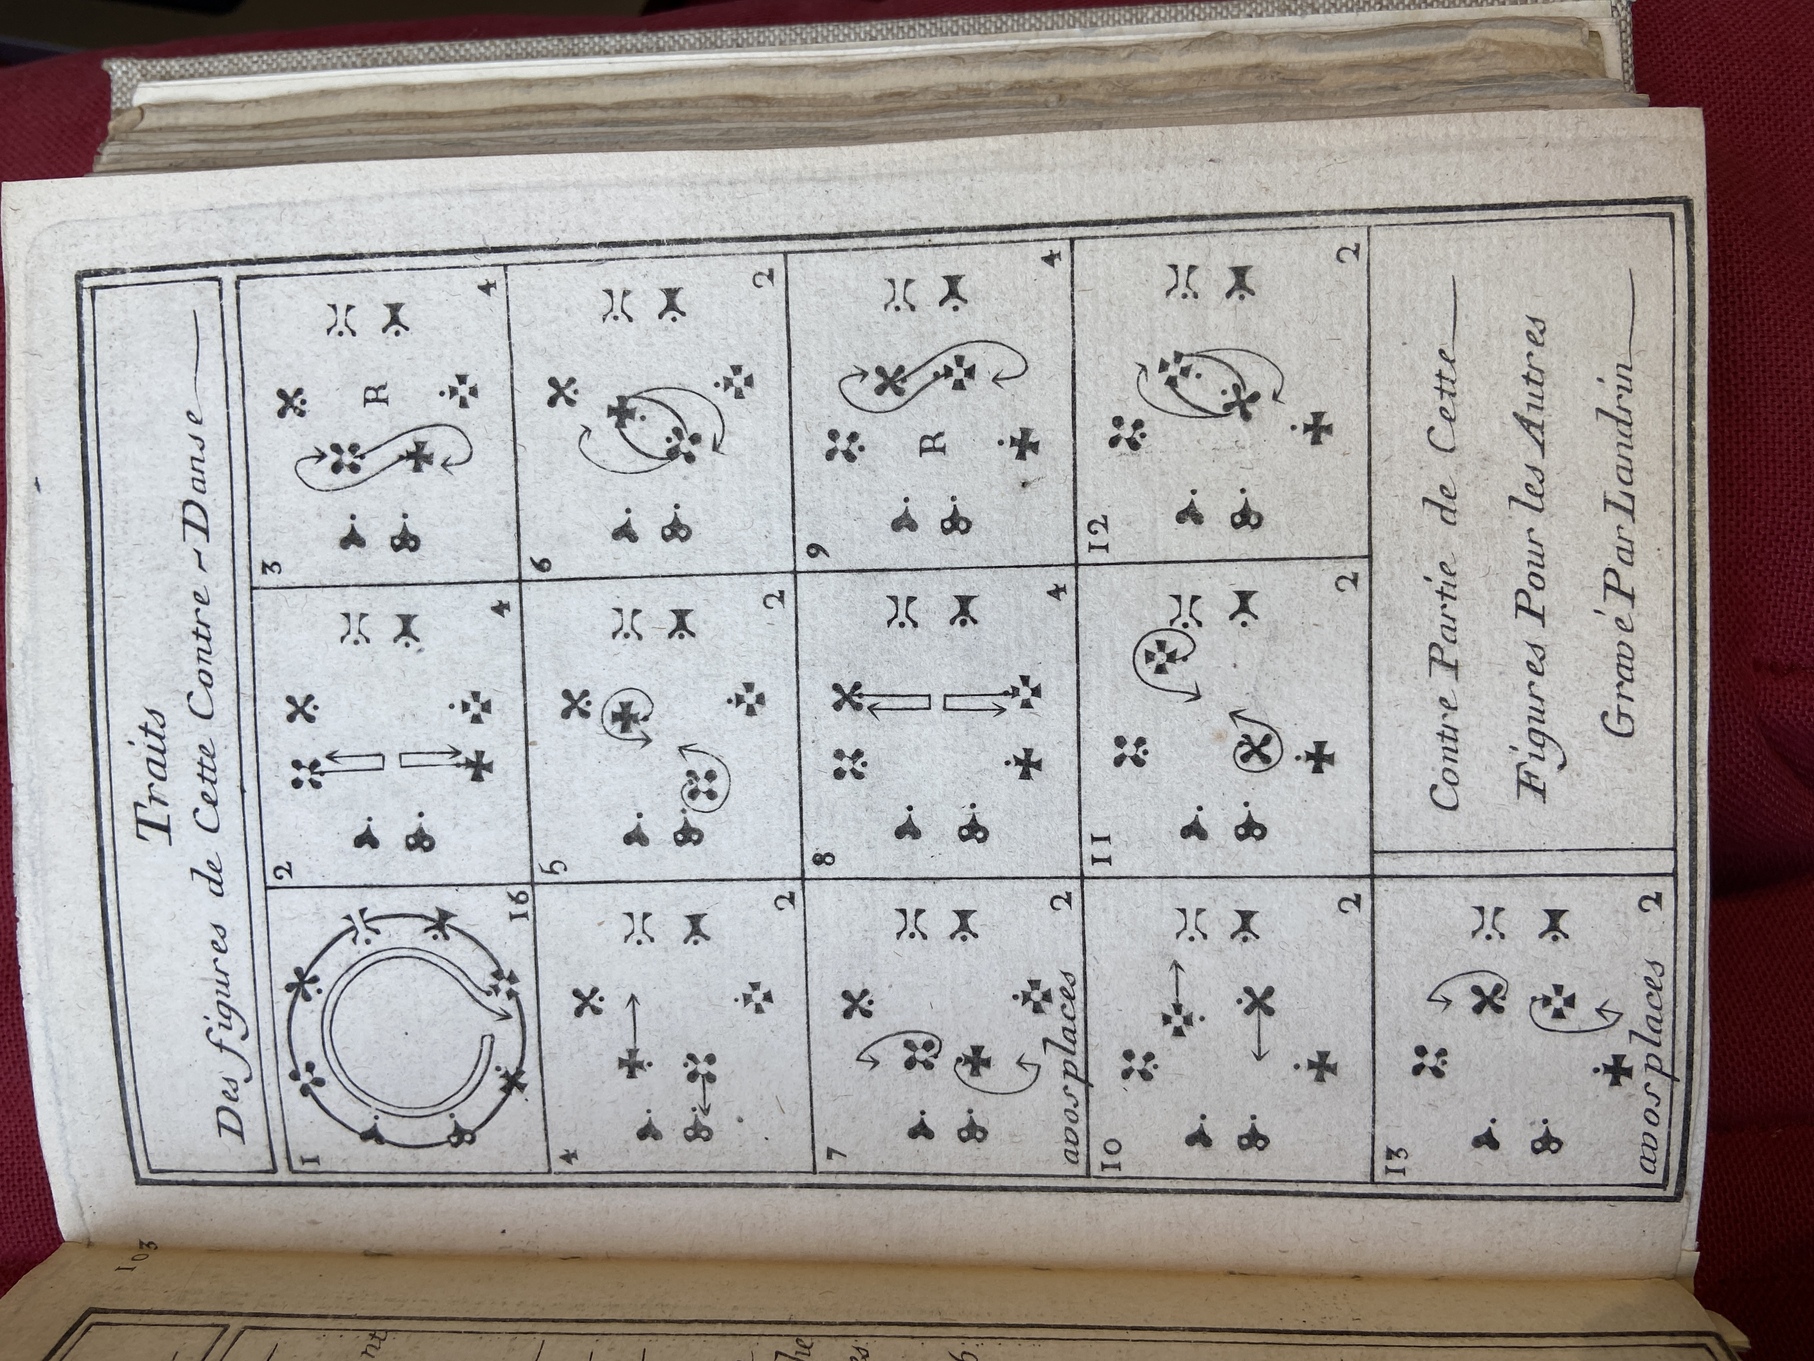 Traits
Des figures de Cette Contre-Danse
1 16
2 4
3 R 4
4 2
5 2
6 2
7 2
avos places
8 4
9 R 4
10 2
11 2
12 2
13
avos places 2
Contre Partie de Cette
Figures Pour les Autres
Gravé Par Landrin
103
nt
he
es